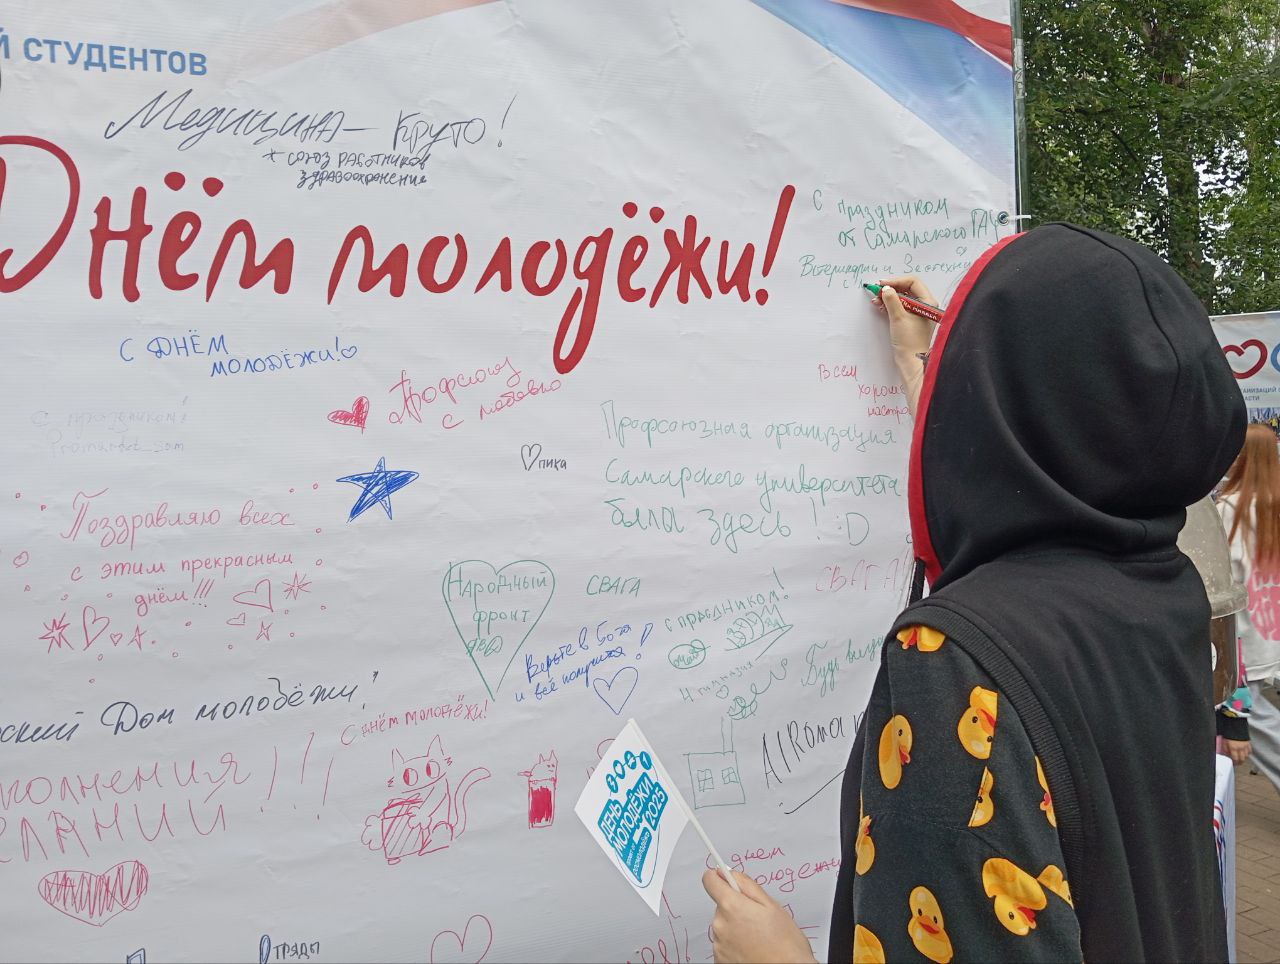 Й СТУДЕНТОВ
Медицина – круто!
+ союз работников
здравоохранения
Днём молодёжи!
С праздником
от Самарского ГАУ
Ветеринарии и Зоотехнии
С ДНЁМ
МОЛОДЁЖИ!
Профсоюз
с любовью
Всем
хороше
настро
с праздником!
Профсоюзная организация
Самарского университета
была здесь! :D
пика
Поздравляю всех
с этим прекрасным
днём!!!
НАРОДНЫЙ
фронт
СВАГА
СВАГА
с праздником!
Верьте в Бога
и всё получится!
Будь
ский Дом молодёжи!
С днём молодёжи!
полнения
ЕЛАНИЙ!!!
AIRoma
ДЕНЬ
МОЛОДЁЖИ
2025
С днём
молодёжи
ОТРЯДЫ